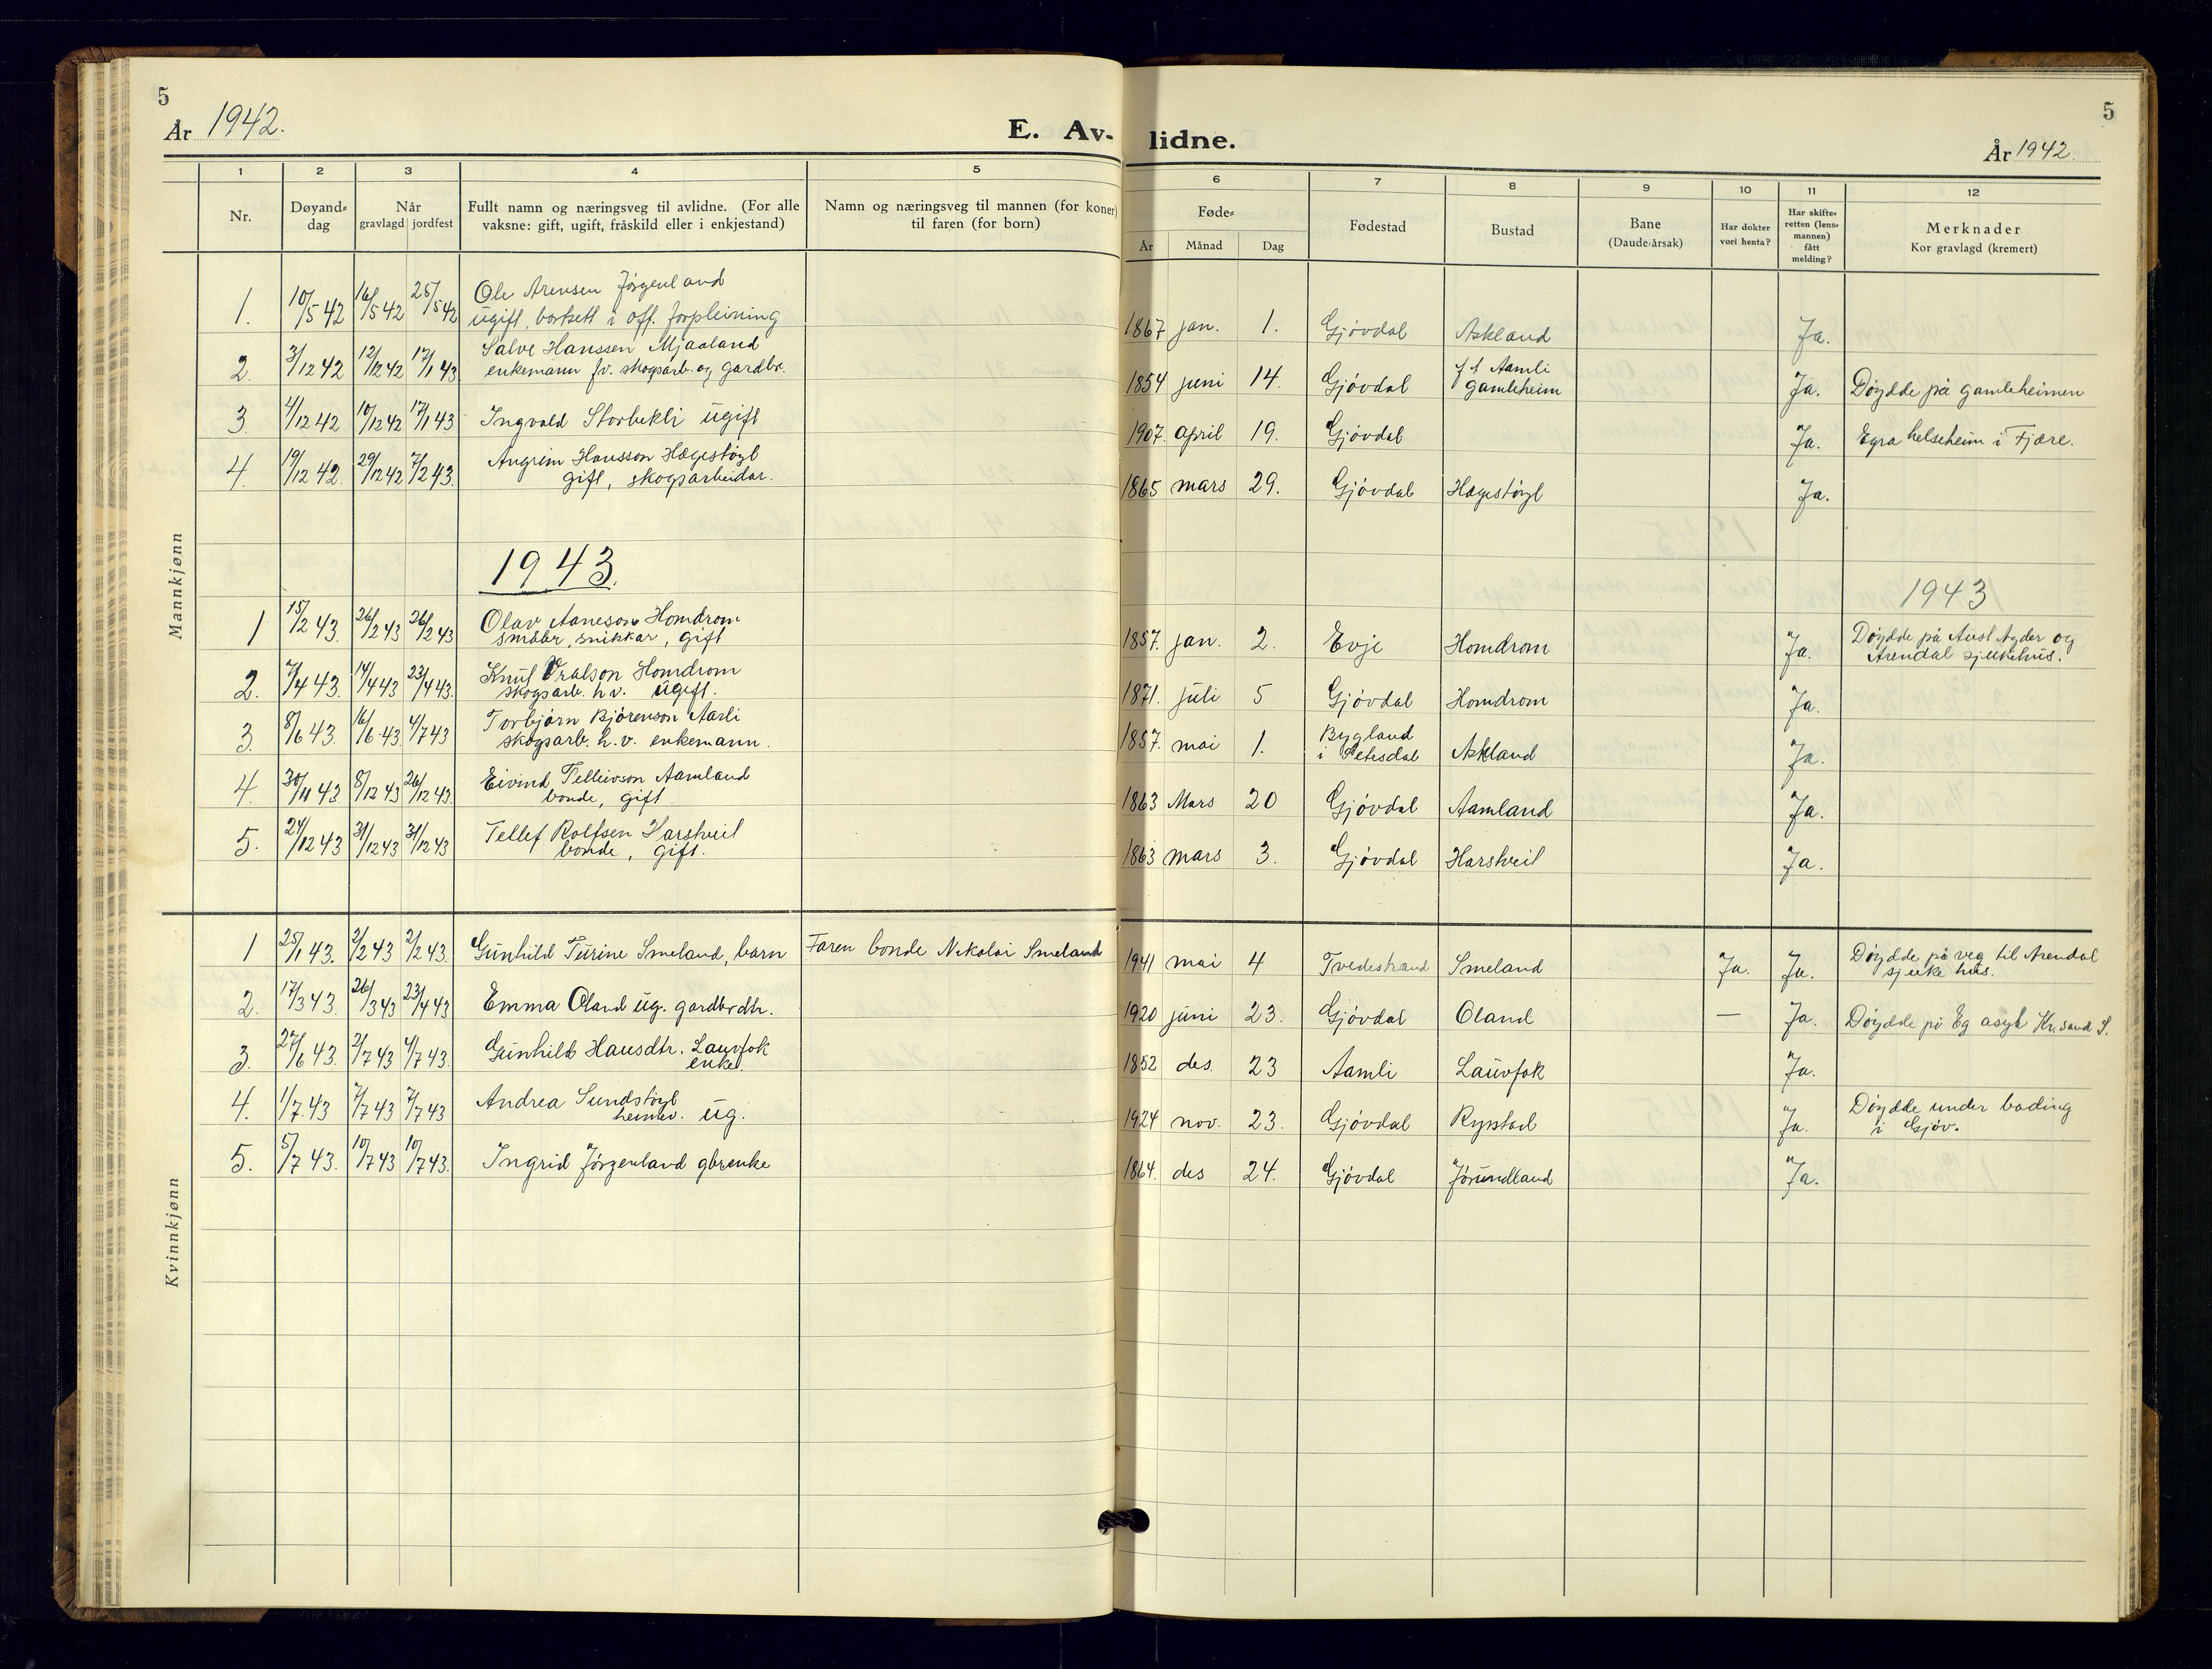 5
År 1942.
E. Av-
1 2 3 4 5
Nr.
Døyand-
dag
Når
gravlagd jordfest
Fullt namn og næringsveg til avlidne. (For alle
vaksne: gift, ugift, fråskild eller i enkjestand)
Namn og næringsveg til mannen (for koner)
til faren (for born)
Mannkjønn
1. 10/5 42 16/5 42 25/5 42 Ole Arensen Jörgenland
ugift, bortsett i off. forpleining
2. 3/12 42 12/12 42 17/1 43 Salve Hanssen Mjaaland
enkemann fv. skogsarb. og gardbr.
3. 4/12 42 10/12 42 17/1 43 Ingvald Storbekli ugift
4. 19/12 42. 29/12 42 7/2 43. Hansson Hægestöyl
gift, skogsarbeidar.
1943.
1 15/2 43. 26/2 43 26/2 43 Olav Aaneson Homdrom
snikkar, gift
2. 7/4 43. 14/4 43 23/4 43. Knut Homdrom
skogsarb. h.v. ugift.
3. 8/6 43. 16/6 43. 4/7 43 Torbjørn Bjórenson Aasli
skogsarb. h.v. enkemann.
4. 30/11 43. 8/12 43 26/12 43. Eivind Aamland
bonde, gift
5. 24/12 43 31/12 43 31/12 43 Tellef Rolfsen Harstveit
bonde, gift.
Kvinnkjønn
1 25/1 43. 2/2 43 2/2 43. Gunhild Turine Smeland, barn Faren bonde Nikolai Smeland
2. 17/3 43. 26/3 43 23/4 43 Emma Oland ug. gardbrdtr.
3. 27/6 43. 2/7 43 4/7 43. Gunhild Hansdtr. Lauvfok
enke.
4. 1/7 43 7/7 43 7/7 43 Andrea Sundstöyl
heimev. ug.
5. 5/7 43. 10/7 43 10/7 43. Ingrid Jörgenland gbrenke
lidne.
5
År 1942.
6 7 8 9 10 11 12
Føde-
År Månad Dag
Fødestad
Bustad
Bane
(Daude-årsak)
Har dokter
vori henta?
Har skifte-
retten (lens-
mannen)
fått
melding?
Merknader
Kor gravlagd (kremert)
1867 jan. 1. Gjóvdal Askland Ja.
1854 juni 14. Gjóvdal Aamli
Gamleheim Ja. Döydde på gamleheimen
1907. april 19. Gjóvdal Ja. Egra helseheim i Fjære.
1865 mars 29. Gjóvdal Hægestöyl Ja.
1943
1857. jan. 2. Evje Homdrom Ja. Döydde på Aust Agder og
Arendal sjukehus.
1871. juli 5 Gjóvdal Homdrom Ja.
1857. mai 1. Bygland
i Setesdal Askland Ja.
1863 Mars 20 Gjóvdal Aamland Ja.
1863 mars 3. Gjóvdal Harstveit Ja.
1941 mai 4 Tvedestrand Smeland Ja. Ja. Döydde på veg til Arendal
sjukehus.
1920 juni 23. Gjóvdal Oland — Ja. Döydde på Eg asyl Kr.sand S.
1852 des. 23 Aamli Lauvfok Ja.
1924 nov. 23. Gjóvdal Rypstad Ja. Döydde under bading
i Gjöv.
1864. des 24. Gjóvdal Jórundland Ja.